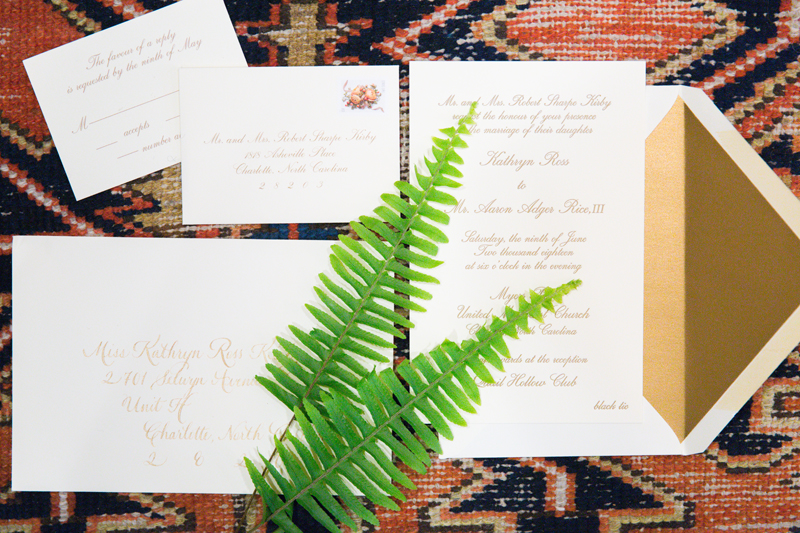 The favour of a reply
is requested by the ninth of May
M
accepts
number a
Mr. and Mrs. Robert Sharpe Kirby
Asheville Place
Charlotte, North Carolina
28205
Mr. and Mrs. Robert Sharpe Kirby
the honour of your presence
the marriage of their daughter
Kathryn Ross
to
Mr. Aaron Adger Rice, III
Saturday, the ninth of June
Two thousand eighteen
at six o'clock in the evening
My
United Church
Carolina
at the reception
Quail Hollow Club
black tie
Miss Kathryn Ross K
2701 Selwyn Avenue
Unit A
Charlotte, North
2